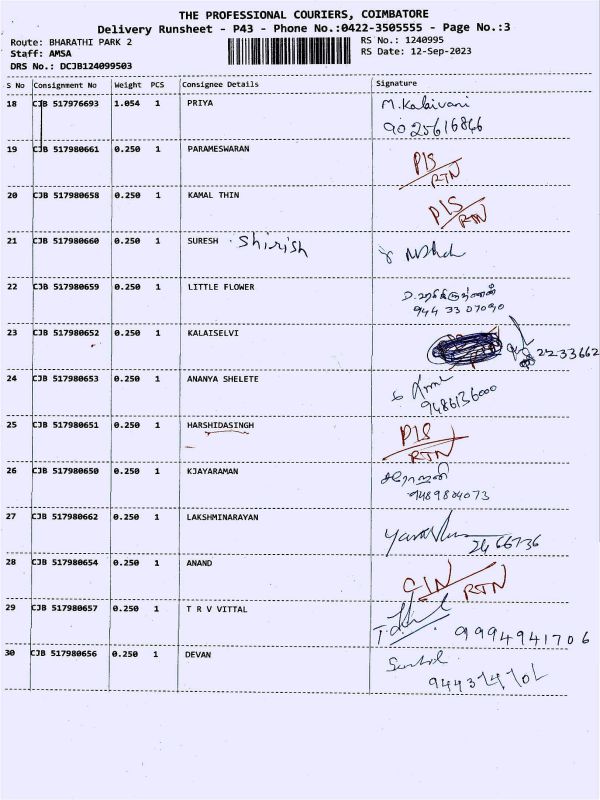 THE PROFESSIONAL COURIERS, COIMBATORE
Delivery Runsheet - P43 - Phone No.:0422-3505555 - Page No.:3
Route: BHARATHI PARK 2 RS No.: 1240995
Staff: AMSA RS Date: 12-Sep-2023
DRS No.: DCJB124099503
S No Consignment No Weight PCS Consignee Details Signature
18 CJB 517976693 1.054 1 PRIYA M.Kalaivani
9025616846
19 CJB 517980661 0.250 1 PARAMESWARAN P/S
RTN
20 CJB 517980658 0.250 1 KAMAL THIN P/S
RTN
21 CJB 517980660 0.250 1 SURESH . Shirish
22 CJB 517980659 0.250 1 LITTLE FLOWER
944 33 07090
23 CJB 517980652 0.250 1 KALAISELVI 2233662
24 CJB 517980653 0.250 1 ANANYA SHELETE
9486136000
25 CJB 517980651 0.250 1 HARSHIDASINGH P/S
RTN
26 CJB 517980650 0.250 1 KJAYARAMAN சரோஜினி
9489804073
27 CJB 517980662 0.250 1 LAKSHMINARAYAN
2466736
28 CJB 517980654 0.250 1 ANAND C/N RTN
29 CJB 517980657 0.250 1 T R V VITTAL
9994941706
30 CJB 517980656 0.250 1 DEVAN